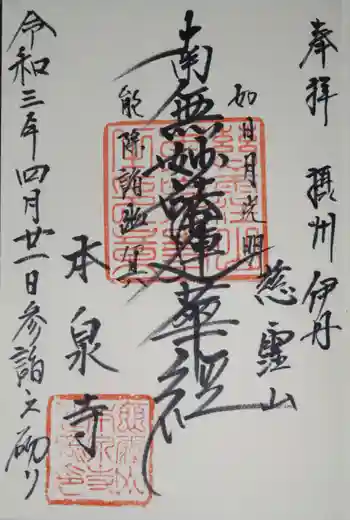 奉拝 摂州伊丹
慈霊山
如日月光明
南無妙法蓮華経
能除諸幽冥
本泉寺
令和三年四月廿一日参詣之砌り